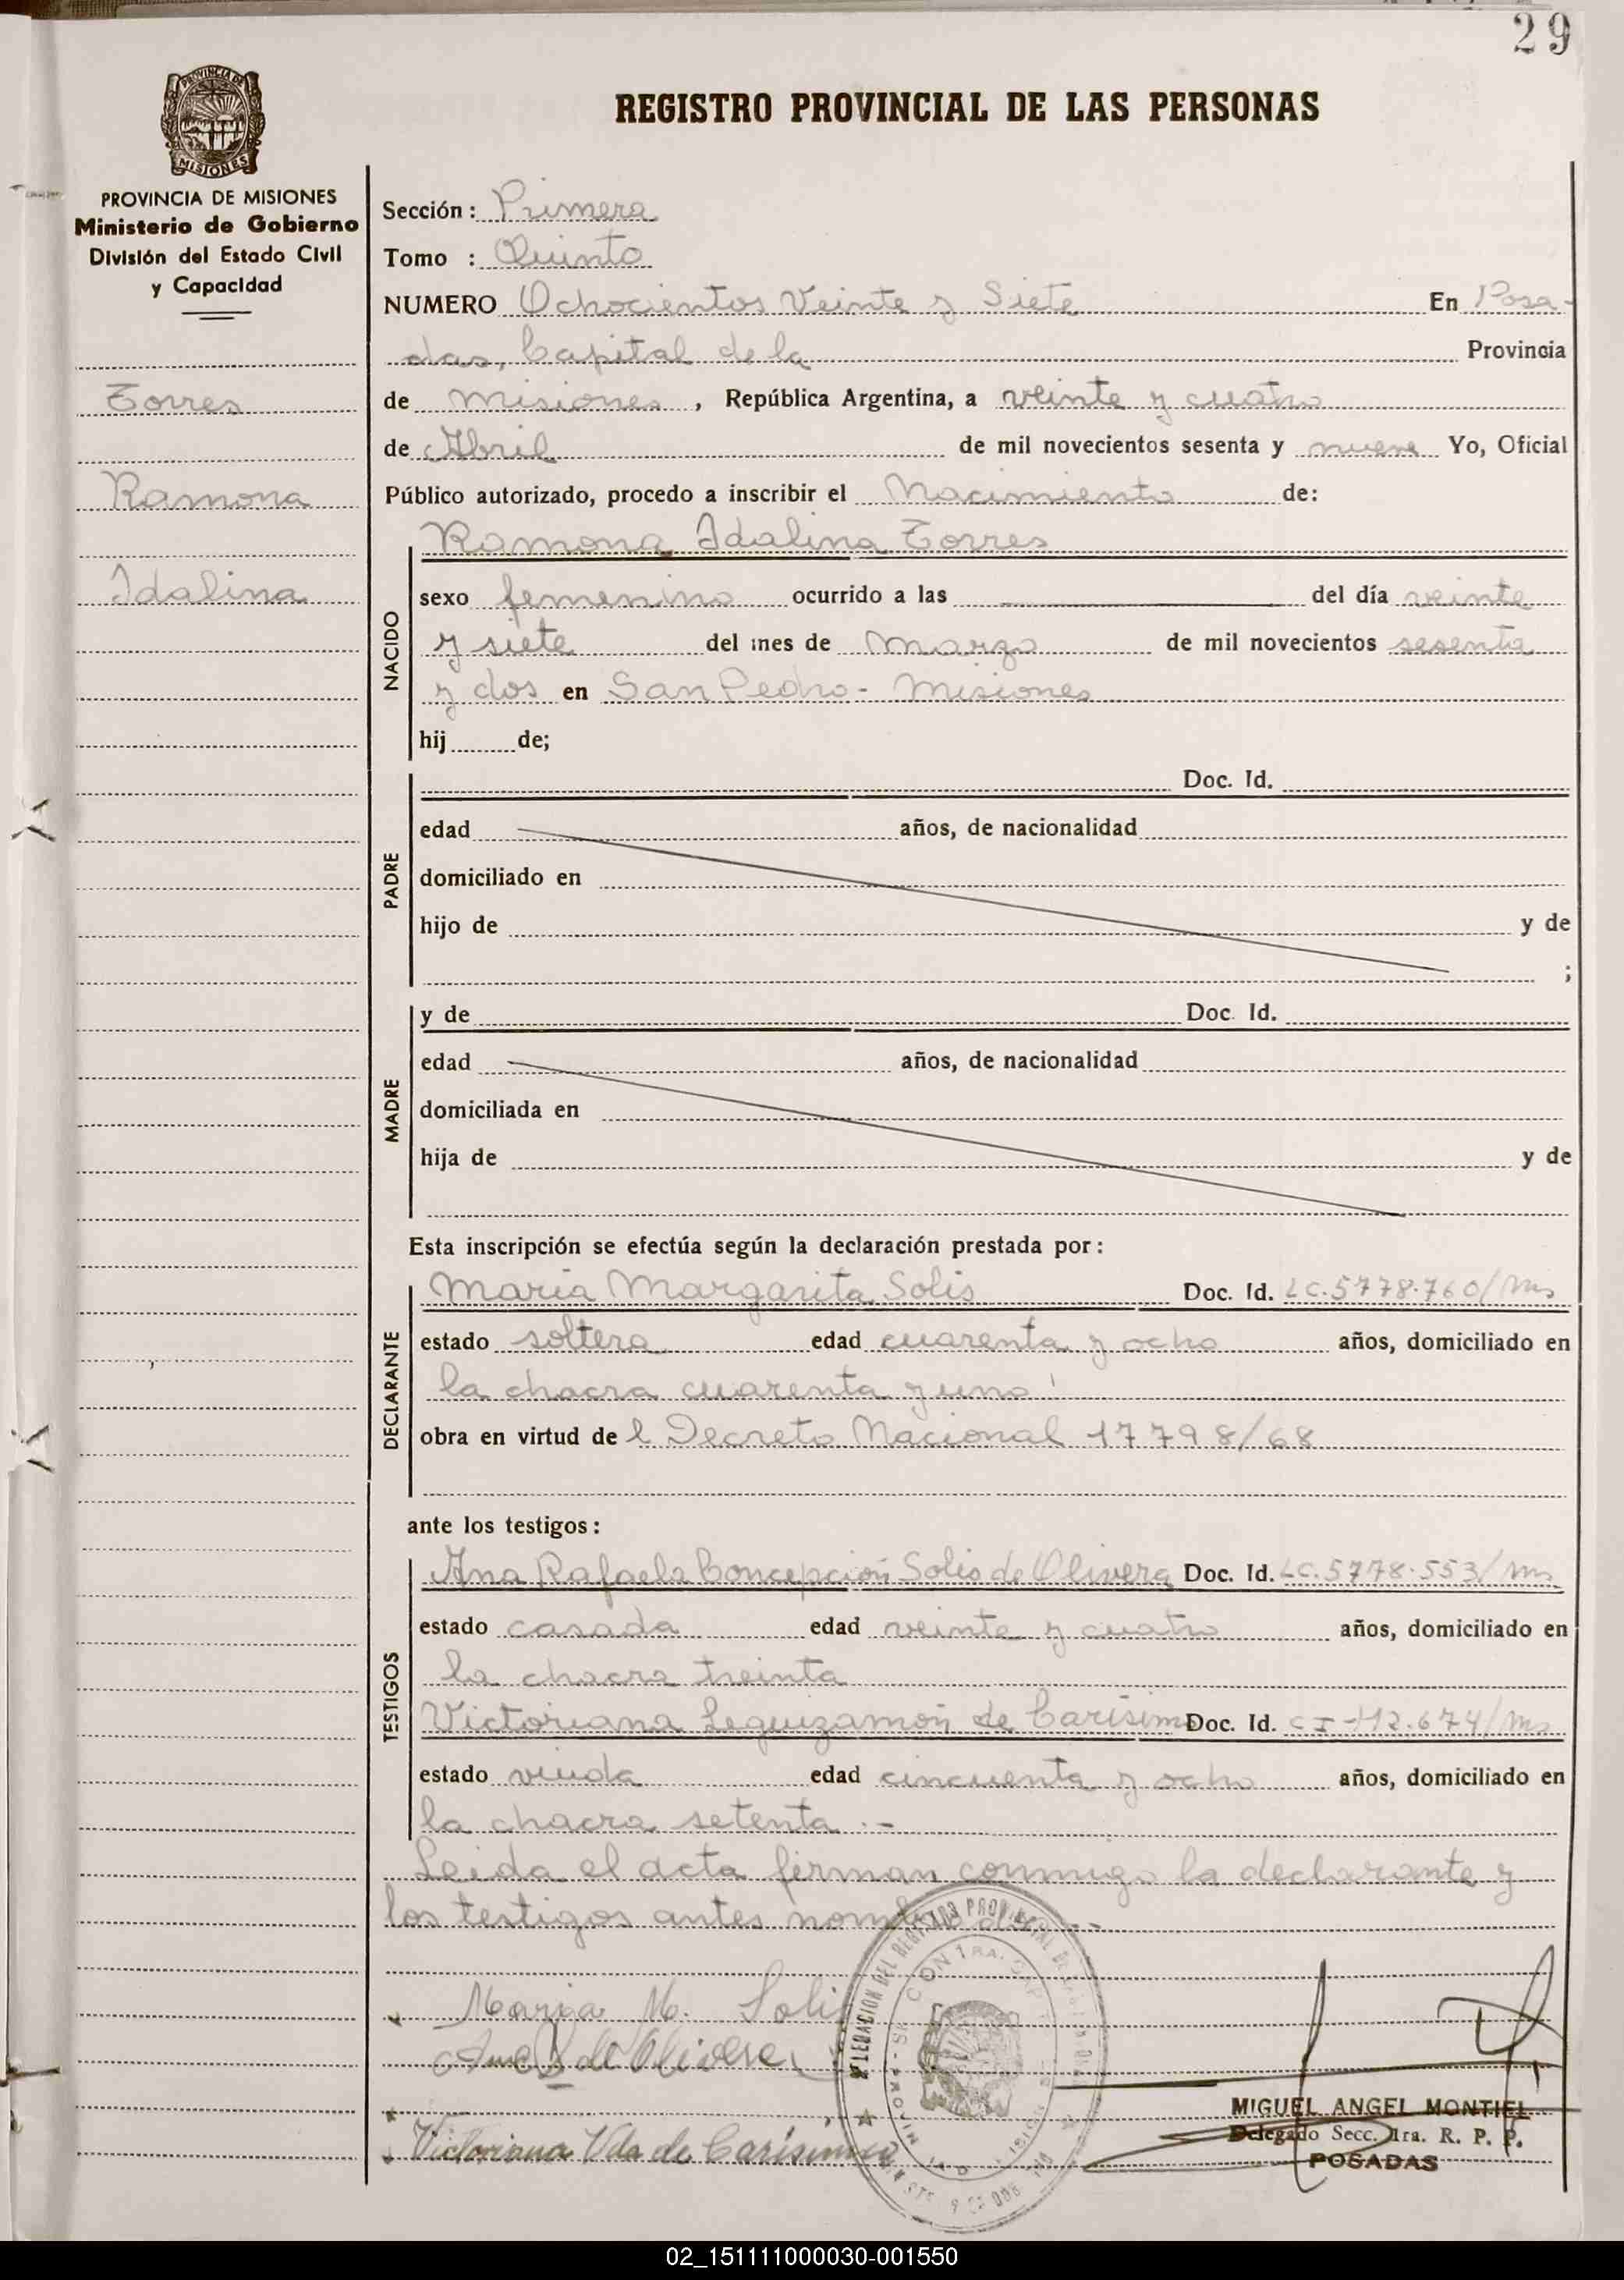 29
REGISTRO PROVINCIAL DE LAS PERSONAS
PROVINCIA DE
MISIONES
PROVINCIA DE MISIONES
Ministerio de Gobierno
División del Estado Civil
y Capacidad
Torres
Ramona
Idalina
Sección: Primera
Tomo : Quinto
NUMERO Ochocientos Veinte y Siete En Posa-
das, Capital de la Provincia
de Misiones, República Argentina, a veinte y cuatro
de Abril de mil novecientos sesenta y nueve Yo, Oficial
Público autorizado, procedo a inscribir el Nacimiento de:
NACIDO
Ramona Idalina Torres
sexo femenino ocurrido a las del día veinte
y siete del mes de Marzo de mil novecientos sesenta
y dos en San Pedro - Misiones
hij de;
PADRE
Doc. Id.
edad años, de nacionalidad
domiciliado en
hijo de y de
;
MADRE
y de Doc. Id.
edad años, de nacionalidad
domiciliada en
hija de y de
Esta inscripción se efectúa según la declaración prestada por:
DECLARANTE
Maria Margarita Solis Doc. Id. LC.5778.760/Ms
estado soltera edad cuarenta y ocho años, domiciliado en
la chacra cuarenta y uno
obra en virtud de l Decreto Nacional 17798/68
ante los testigos:
TESTIGOS
Ana Rafaela Concepción Solis de Olivera Doc. Id. LC.5778.553/Ms
estado casada edad veinte y cuatro años, domiciliado en
la chacra treinta
Victoriana Leguizamón de Carísimo Doc. Id. CI-112.674/Ms
estado viuda edad cincuenta y ocho años, domiciliado en
la chacra setenta.-
Leida el acta firman conmigo la declarante y
los testigos antes nombrados.-
Maria M. Solis
Ana S de Olivera
Victoriana Vda de Carísimo
DELEGACION DEL REGISTRO PROVINCIAL DE LAS PERSONAS
MIGUEL ANGEL MONTIEL
Delegado Secc. 1ra. R. P. P.
POSADAS
02_151111000030-001550